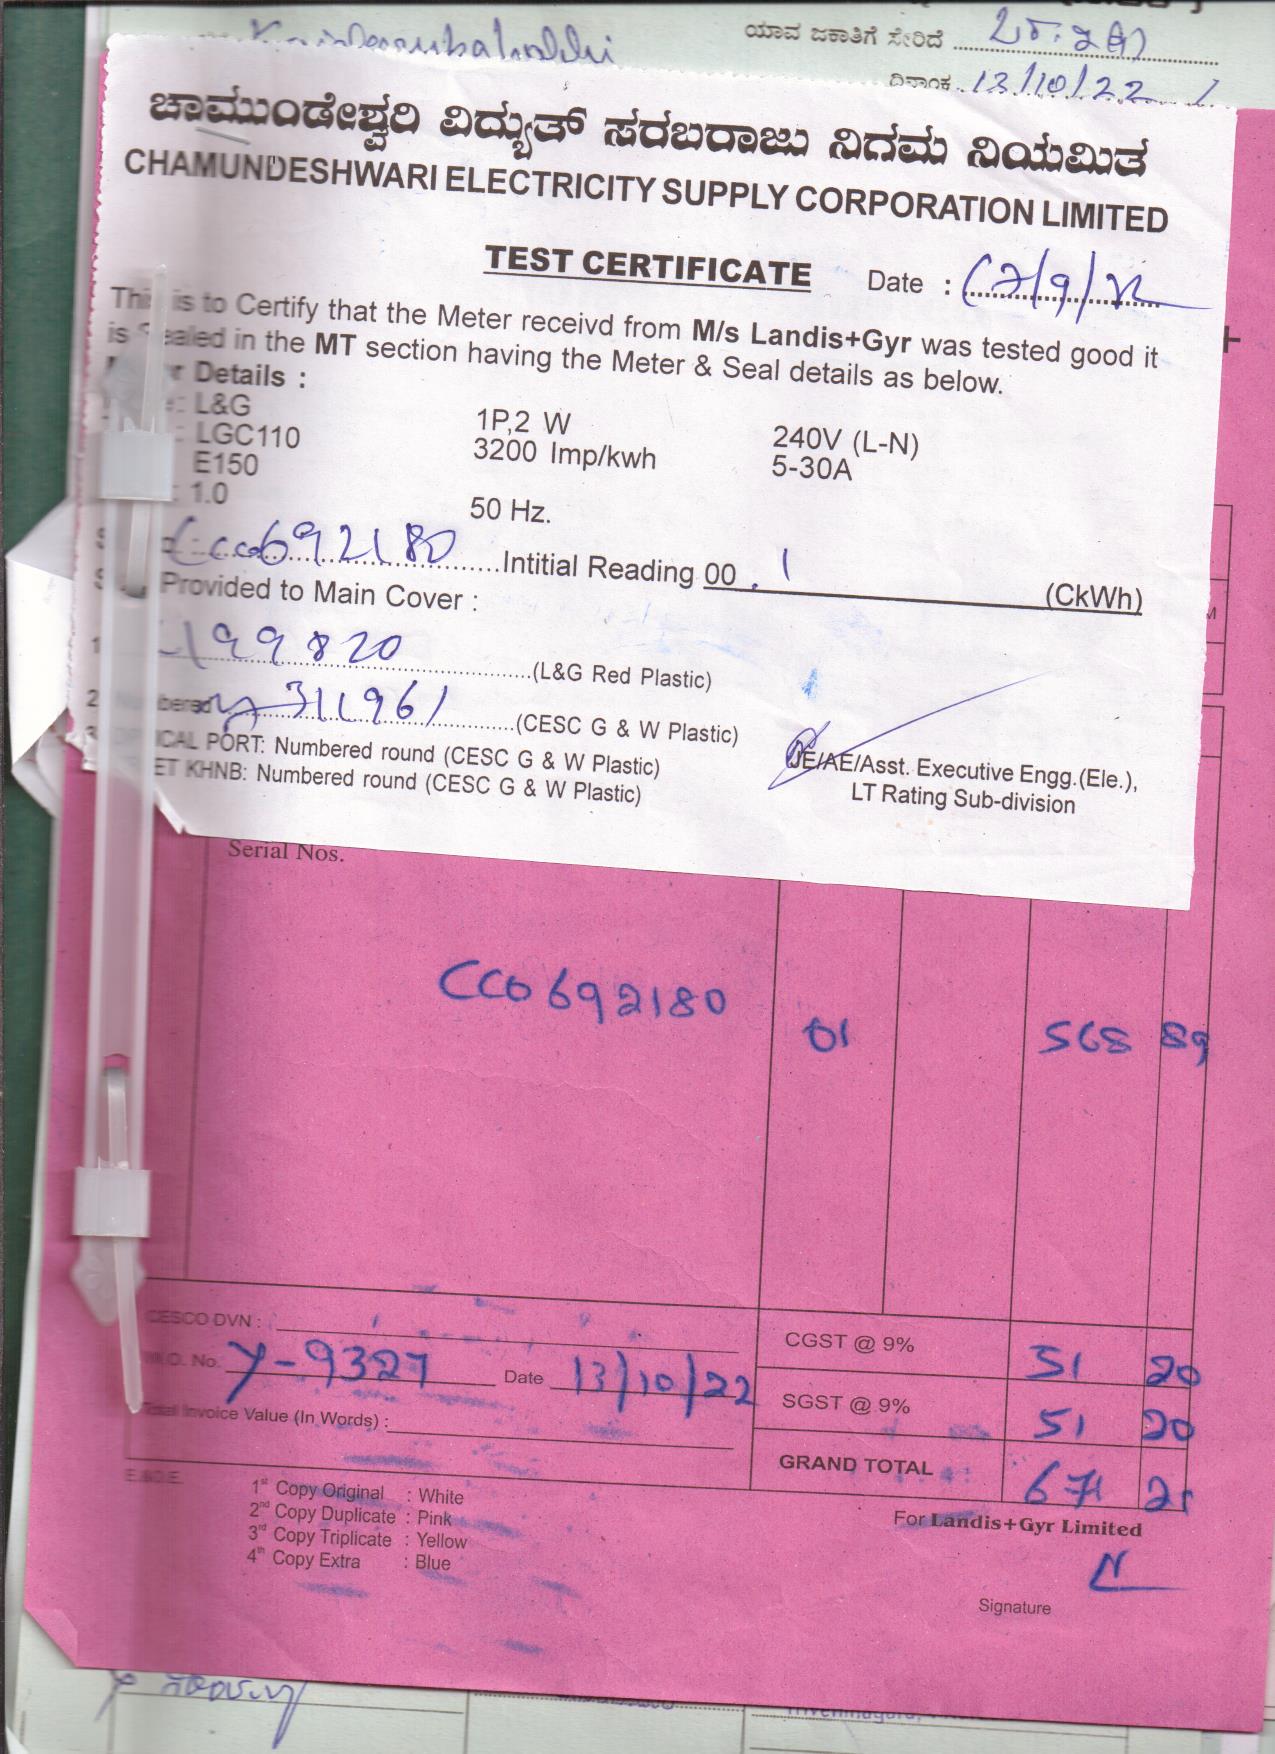 ಯಾವ ಜಕಾತಿಗೆ ಸೇರಿದೆ
ದಿನಾಂಕ 13/10/22
ಚಾಮುಂಡೇಶ್ವರಿ ವಿದ್ಯುತ್ ಸರಬರಾಜು ನಿಗಮ ನಿಯಮಿತ
CHAMUNDESHWARI ELECTRICITY SUPPLY CORPORATION LIMITED
TEST CERTIFICATE Date :
This is to Certify that the Meter receivd from M/s Landis+Gyr was tested good it
is Sealed in the MT section having the Meter & Seal details as below.
Details :
: L&G 1P,2 W 240V (L-N)
: LGC110 3200 Imp/kwh 5-30A
E150
: 1.0 50 Hz.
CC0692180 Intitial Reading 00 . 1 (CkWh)
Provided to Main Cover :
199820 (L&G Red Plastic)
2. Numbered 311961 (CESC G & W Plastic)
PORT: Numbered round (CESC G & W Plastic)
KHNB: Numbered round (CESC G & W Plastic)
JE/AE/Asst. Executive Engg.(Ele.),
LT Rating Sub-division
Serial Nos.
CC0692180 01 568 89
CESCO DVN :
No. Y-9327 Date 13/10/22
Total Invoice Value (In Words) :
CGST @ 9% 51 20
SGST @ 9% 51 20
GRAND TOTAL 671
E.&O.E.
1st Copy Original : White
2nd Copy Duplicate : Pink
3rd Copy Triplicate : Yellow
4th Copy Extra : Blue
For Landis+Gyr Limited
Signature